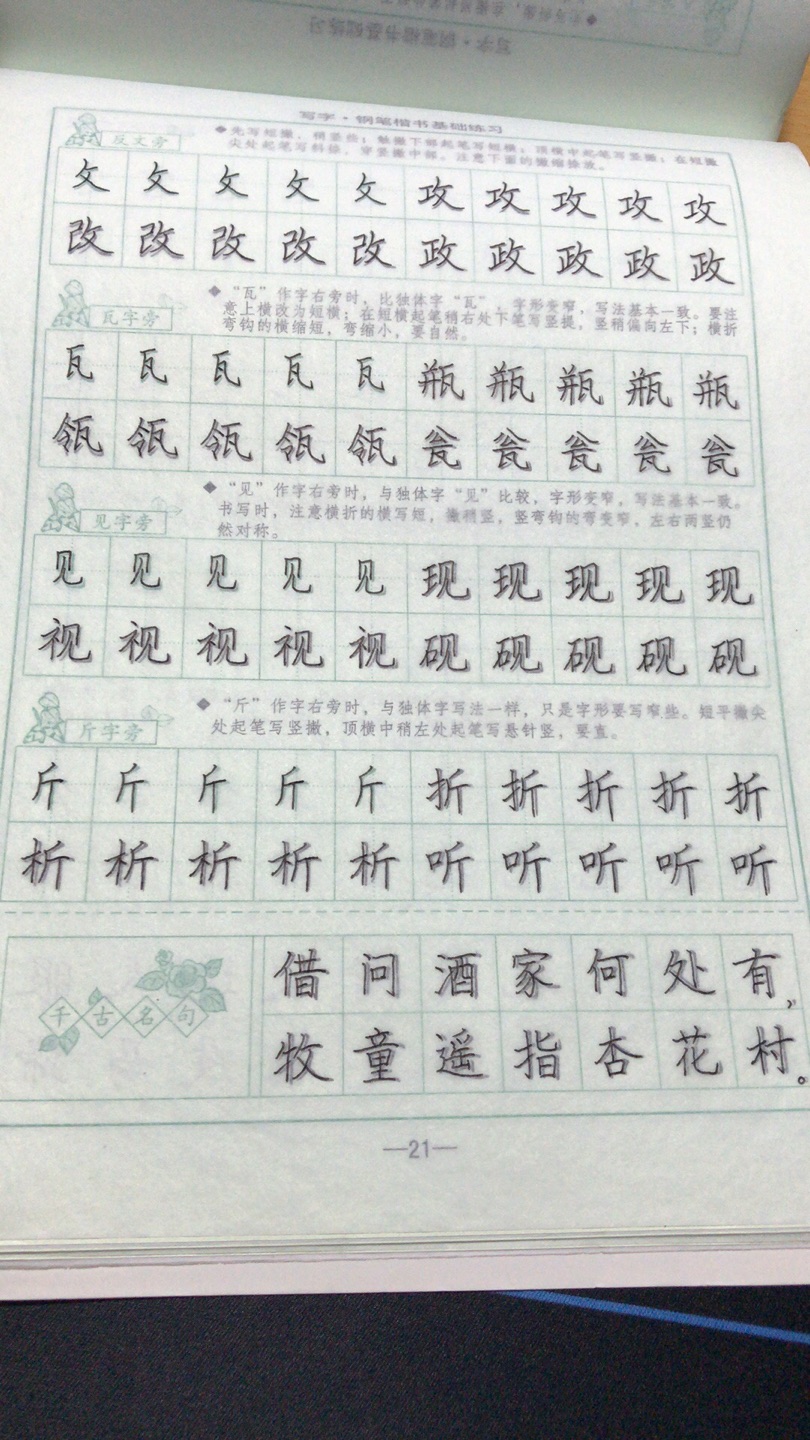 写字·钢笔楷书基础练习
写字·钢笔楷书基础练习
反文旁
◆先写短撇，稍竖些；触撇下部起笔写短横；顶横中起笔写竖撇；在短撇
尖处起笔写斜捺，穿竖撇中部。注意下面的撇缩捺放。
攵攵攵攵攵攻攻攻攻攻
改改改改改政政政政政
瓦字旁
◆“瓦”作字右旁时，比独体字“瓦”，字形变窄，写法基本一致。要注
意上横改为短横；在短横起笔稍右处下笔写竖提，竖稍偏向左下；横折
弯钩的横缩短，弯缩小，要自然。
瓦瓦瓦瓦瓦瓶瓶瓶瓶瓶
瓴瓴瓴瓴瓴瓮瓮瓮瓮瓮
见字旁
◆“见”作字右旁时，与独体字“见”比较，字形变窄，写法基本一致。
书写时，注意横折的横写短，撇稍竖，竖弯钩的弯变窄，左右两竖仍
然对称。
见见见见见现现现现现
视视视视视砚砚砚砚砚
斤字旁
◆“斤”作字右旁时，与独体字写法一样，只是字形要写窄些。短平撇尖
处起笔写竖撇，顶横中稍左处起笔写悬针竖，要直。
斤斤斤斤斤折折折折折
析析析析析听听听听听
千古名句
借问酒家何处有，
牧童遥指杏花村。
—21—